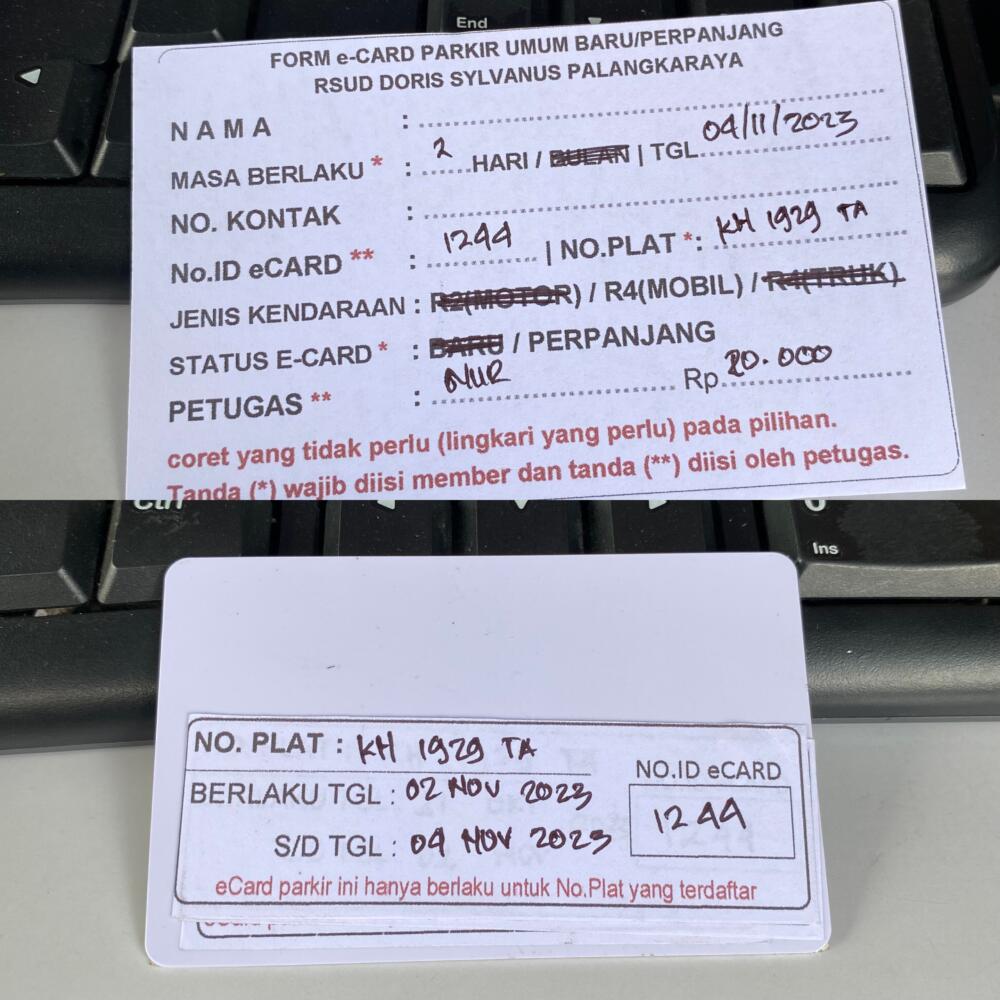 End
FORM e-CARD PARKIR UMUM BARU/PERPANJANG
RSUD DORIS SYLVANUS PALANGKARAYA
NAMA :
MASA BERLAKU * : 2 HARI / BULAN | TGL 04/11/2023
NO. KONTAK :
No.ID eCARD ** : 1244 | NO.PLAT *: KH 1929 TA
JENIS KENDARAAN : R2(MOTOR) / R4(MOBIL) / R4(TRUK)
STATUS E-CARD * : BARU / PERPANJANG
PETUGAS ** : NUR Rp. 20.000
coret yang tidak perlu (lingkari yang perlu) pada pilihan.
Tanda (*) wajib diisi member dan tanda (**) diisi oleh petugas.
Ctrl
Ins
NO. PLAT : KH 1929 TA
BERLAKU TGL : 02 NOV 2023
S/D TGL : 04 NOV 2023
NO.ID eCARD
1244
eCard parkir ini hanya berlaku untuk No.Plat yang terdaftar